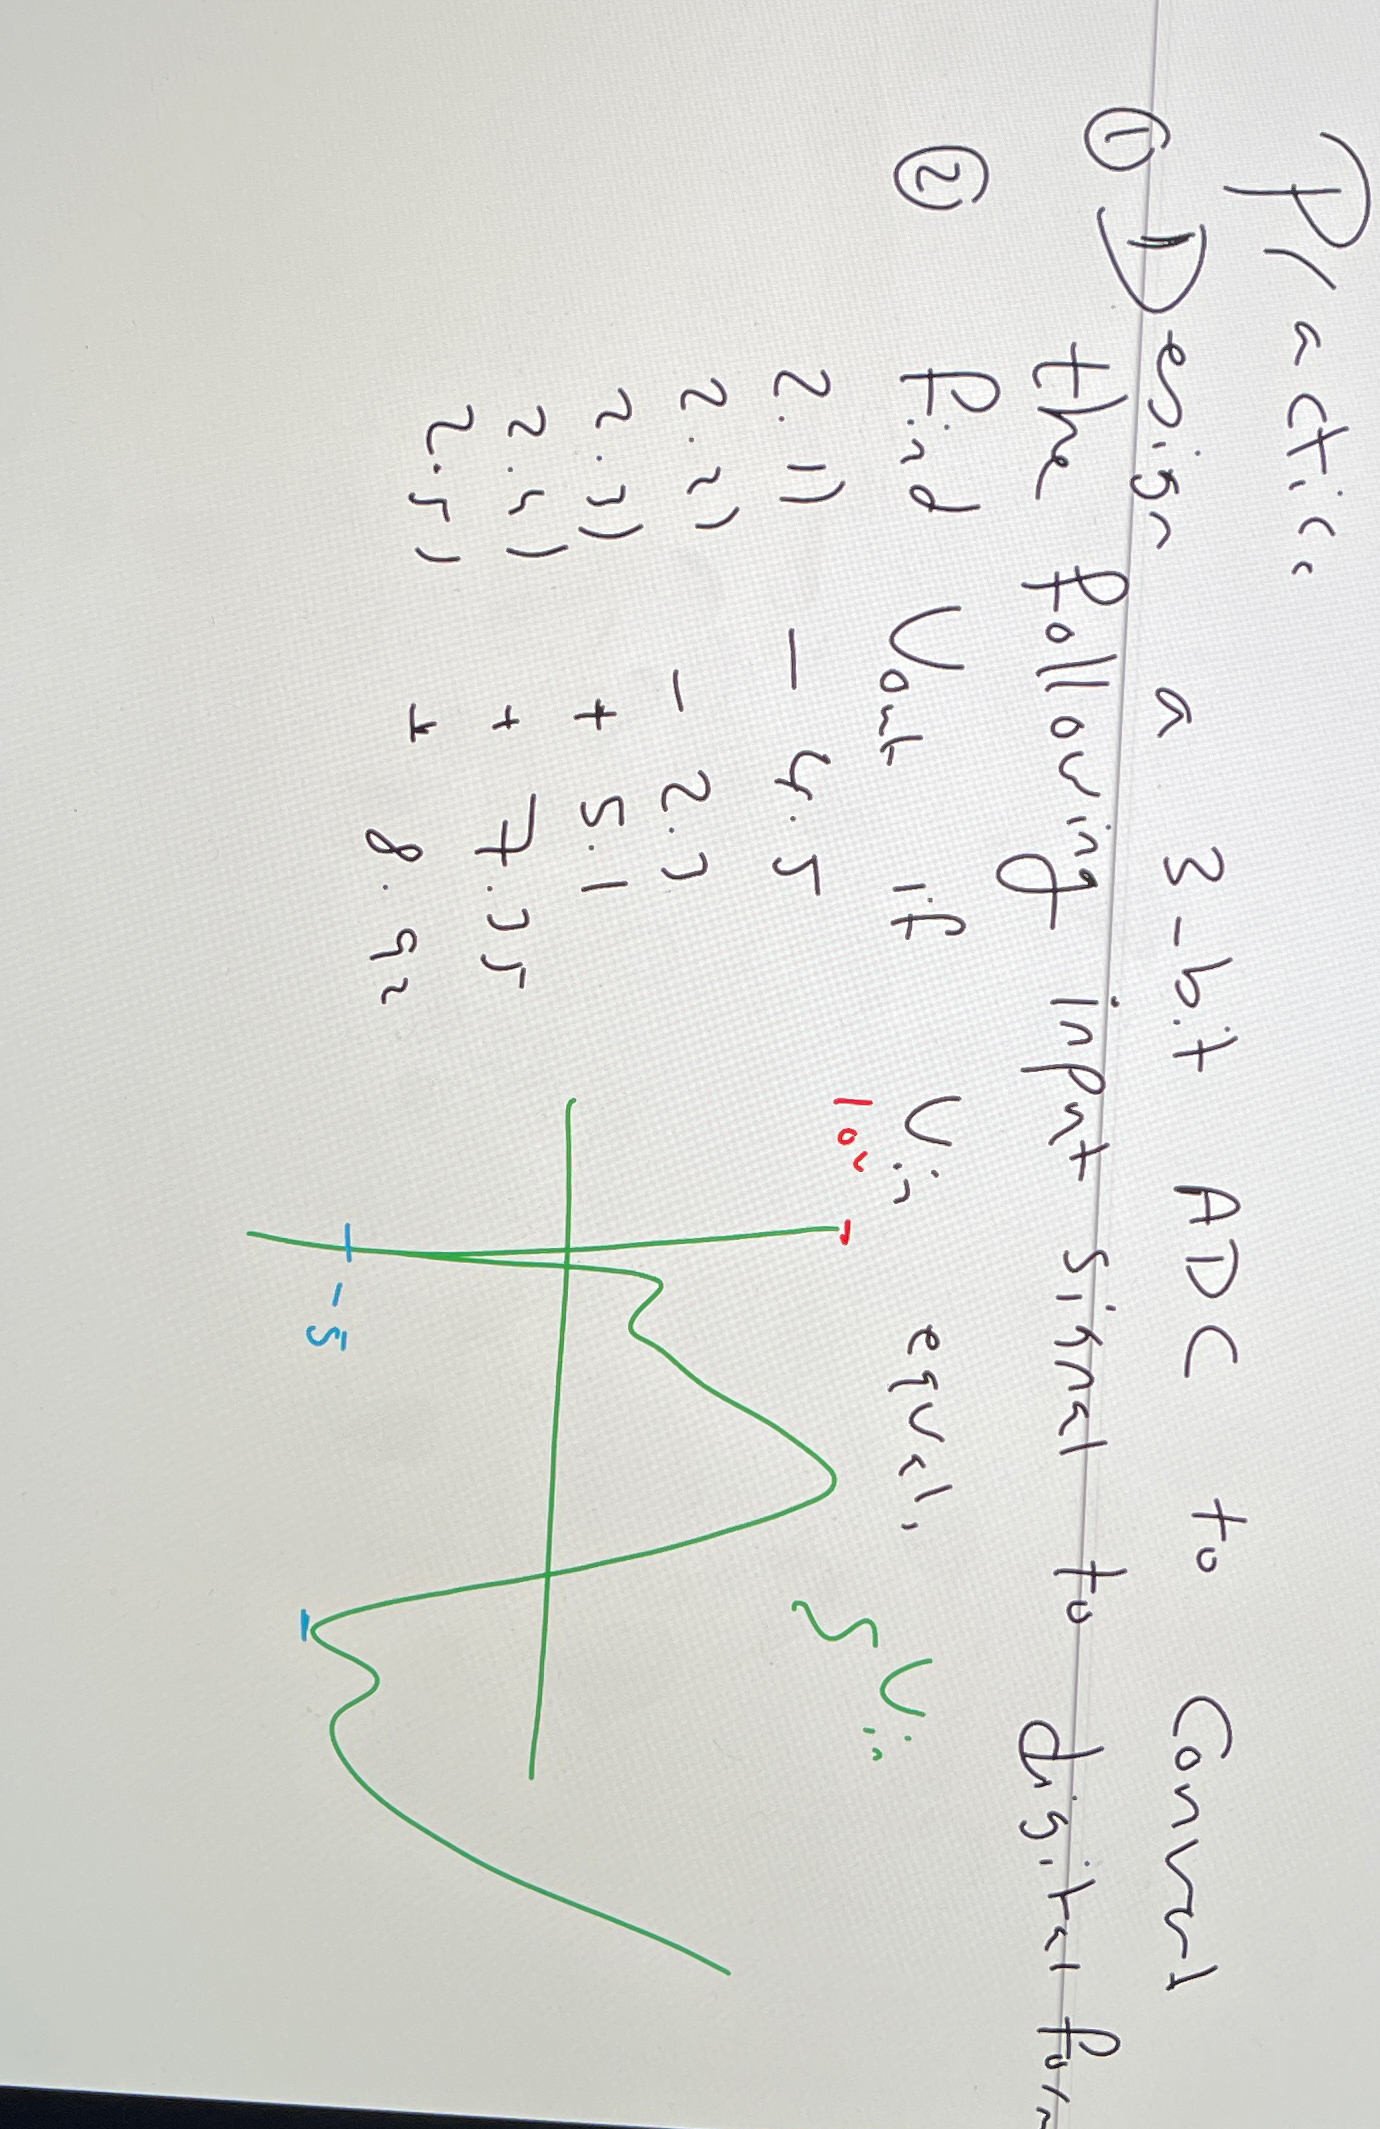 Practice
① Design a 3-bit ADC to Convert
the following input signal to digital form
② find Vout if Vin equal,
2.1) - 4.5
2.2) - 2.3
2.3) + 5.1
2.4) + 7.35
2.5) + 8.92
10v
Vin
-5